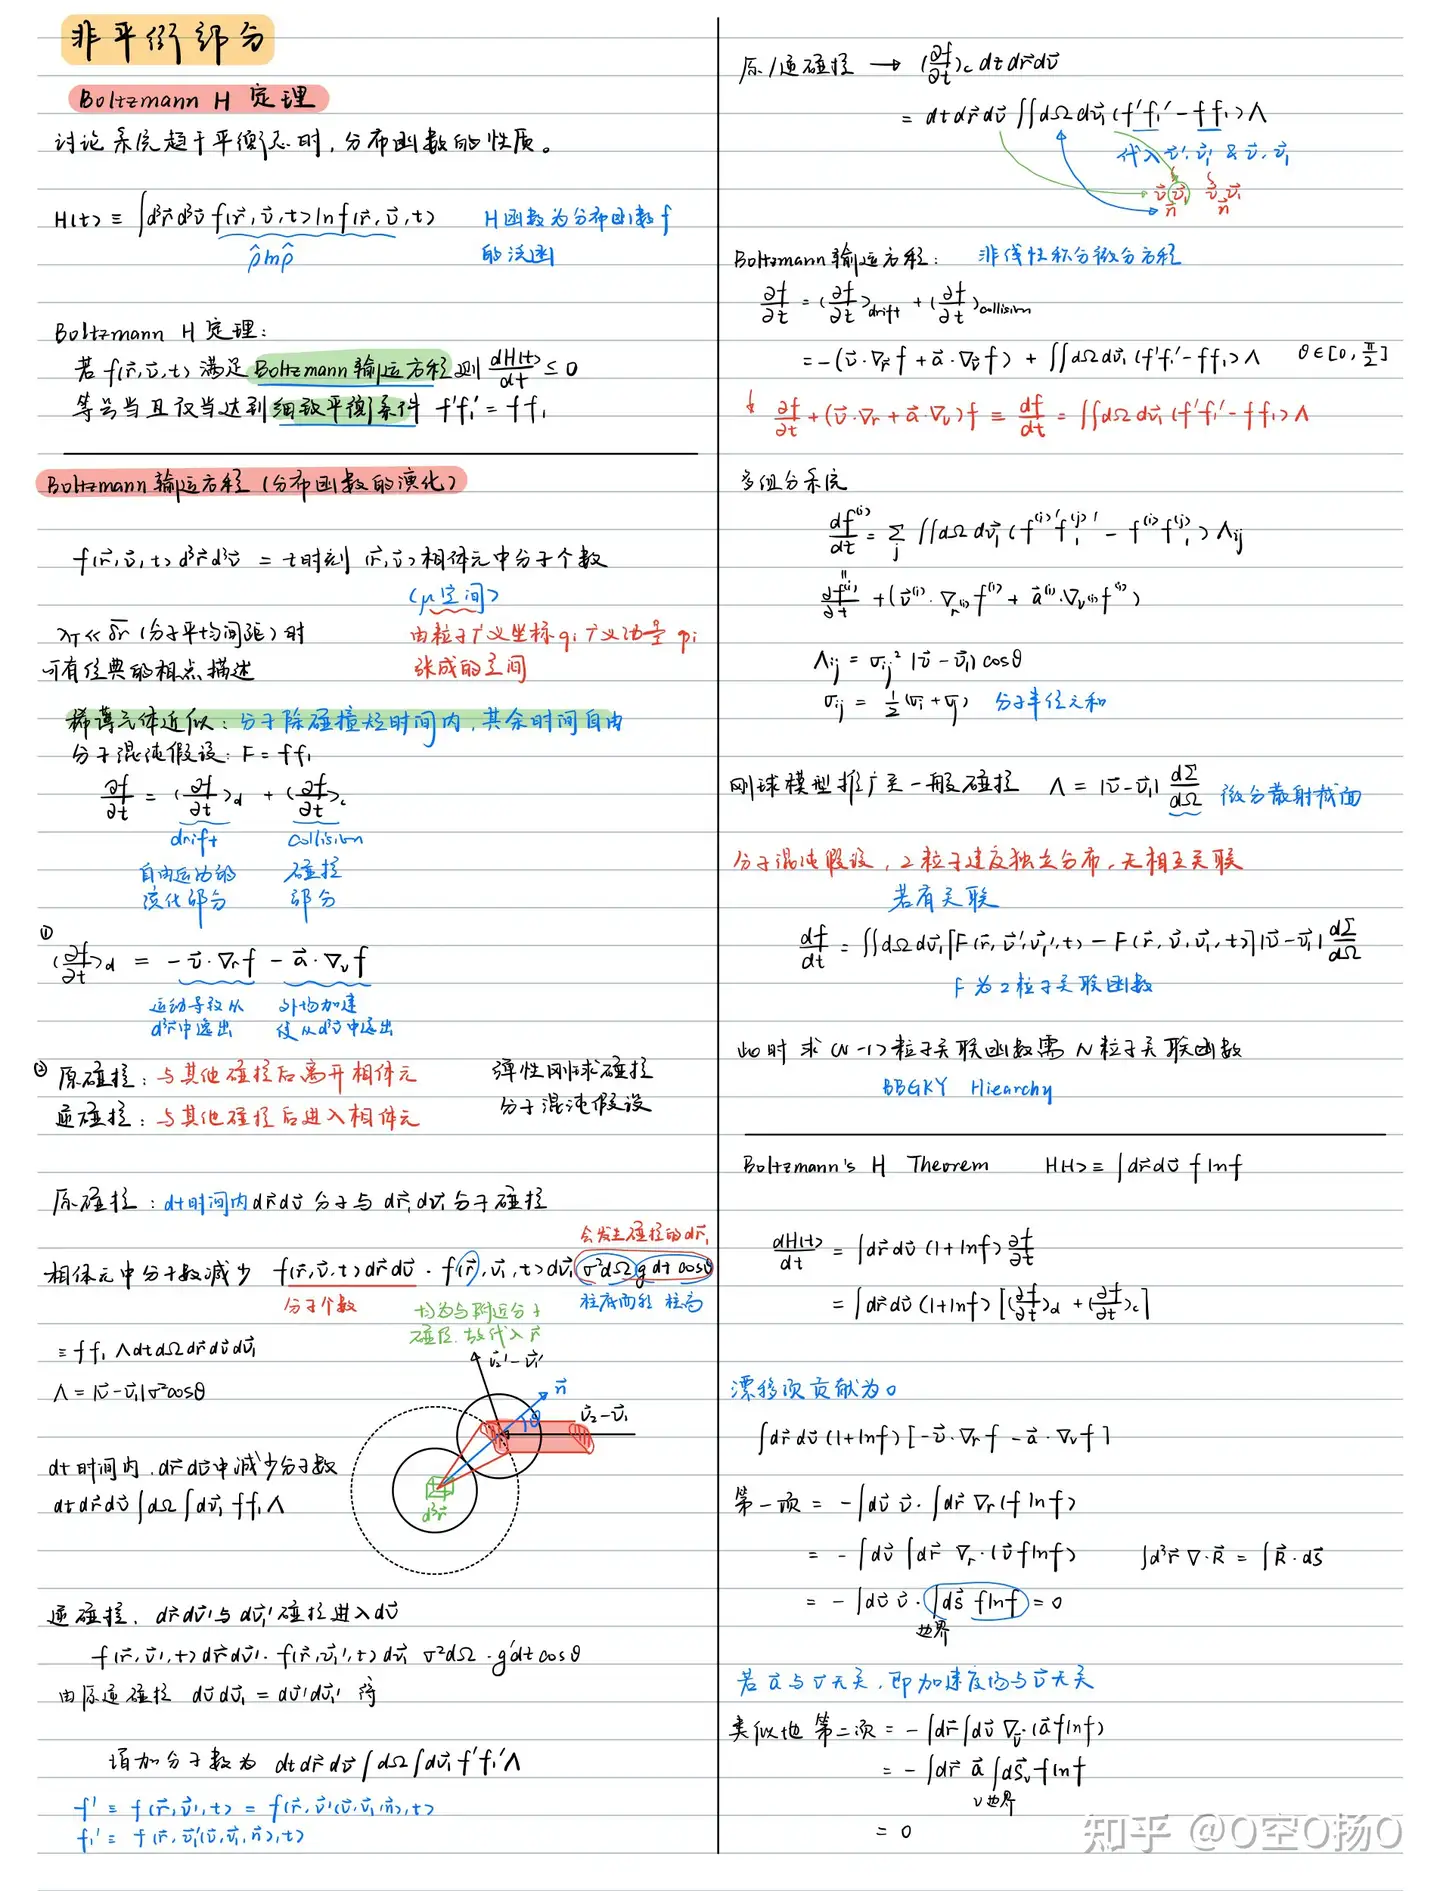 非平衡部分
Boltzmann H 定理
讨论系统趋于平衡态时,分布函数的性质。
H(t) ≡ ∫d³r⃗d³v⃗ f(r⃗,v⃗,t)lnf(r⃗,v⃗,t)
H函数为分布函数f
的泛函
ρ̂lnρ̂
Boltzmann H 定理:
若 f(r⃗,v⃗,t) 满足Boltzmann 输运方程则 dH(t)/dt ≤ 0
等号当且仅当达到细致平衡条件 f'f₁' = ff₁
Boltzmann 输运方程(分布函数的演化)
f(r⃗,v⃗,t)d³r⃗d³v⃗ = t时刻 (r⃗,v⃗)相体元中分子个数
(μ空间)
λ_T ≪ δr̅ (分子平均间距)时
可有经典的相点描述
由粒子广义坐标qᵢ广义动量pᵢ
张成的空间
稀薄气体近似:分子除碰撞短时间内,其余时间自由
分子混沌假设:F = ff₁
∂f/∂t = (∂f/∂t)_d + (∂f/∂t)_c
drift collision
自由运动部 碰撞
演化部分 部分
①
(∂f/∂t)_d = -v⃗·∇_r f - a⃗·∇_v f
运动导致从 外场加速
d³r⃗中逸出 使从d³v⃗中逸出
② 原碰撞:与其他碰撞后离开相体元
逆碰撞:与其他碰撞后进入相体元
弹性刚球碰撞
分子混沌假设
原碰撞:dt时间内dr⃗dv⃗ 分子与 dr⃗₁dv⃗₁分子碰撞
会发生碰撞的dr⃗₁
相体元中分子数减少 f(r⃗,v⃗,t)dr⃗dv⃗ · f(r⃗,v⃗₁,t)dv⃗₁ σ²dΩ g dt cosθ
分子个数
均为与附近分子
碰撞,故代入r⃗
柱底面积 柱高
≡ ff₁ΛdtdΩdR⃗dv⃗dv⃗₁
Λ = |v⃗-v⃗₁|σ²cosθ
v⃗₂'-v⃗₁'
n⃗
θ
v⃗₂-v⃗₁
d³r⃗
dt时间内,dr⃗dv⃗中减少分子数
dtdr⃗dv⃗∫dΩ∫dv⃗₁ff₁Λ
逆碰撞,dr⃗dv⃗'与dv⃗₁'碰撞进入dv⃗
f(r⃗,v⃗',t)dr⃗dv⃗' · f(r⃗,v⃗₁',t)dv⃗₁ σ²dΩ·g'dtcosθ
由原逆碰撞 dv⃗dv⃗₁ = dv⃗'dv⃗₁' 得
增加分子数为 dtdr⃗dv⃗∫dΩ∫dv⃗₁f'f₁'Λ
f' ≡ f(r⃗,v⃗',t) = f(r⃗,v⃗'(v⃗,v⃗₁,n⃗),t)
f₁' ≡ f(r⃗,v⃗₁'(v⃗,v⃗₁,n⃗),t)
原/逆碰撞 → (∂f/∂t)_c dtdr⃗dv⃗
= dtdr⃗dv⃗∬dΩdv⃗₁(f'f₁'-ff₁)Λ
代入v⃗',v⃗₁' & v⃗,v⃗₁
v⃗ v⃗₁ v⃗ v⃗₁
n⃗ n⃗
Boltzmann 输运方程: 非线性积分微分方程
∂f/∂t = (∂f/∂t)_drift + (∂f/∂t)_collision
= -(v⃗·∇_r⃗ f + a⃗·∇_v⃗ f) + ∬dΩdv⃗₁(f'f₁'-ff₁)Λ θ∈[0,π/2]
∂f/∂t + (v⃗·∇_r + a⃗·∇_v)f ≡ df/dt = ∬dΩdv⃗₁(f'f₁'-ff₁)Λ
多组分系统
df⁽ⁱ⁾/dt = Σ_j ∬dΩdv⃗₁(f⁽ⁱ⁾'f₁⁽ʲ⁾' - f⁽ⁱ⁾f₁⁽ʲ⁾)Λij
∂f⁽ⁱ⁾/∂t + (v⃗⁽ⁱ⁾·∇_r⁽ⁱ⁾f⁽ⁱ⁾ + a⃗⁽ⁱ⁾·∇_v⁽ⁱ⁾f⁽ⁱ⁾)
Λij = σij²|v⃗-v⃗₁|cosθ
σij = ½(σi+σj) 分子半径之和
刚球模型推广至一般碰撞 Λ = |v⃗-v⃗₁| dΣ/dΩ 微分散射截面
分子混沌假设,2粒子速度独立分布,无相互关联
若有关联
df/dt = ∬dΩdv⃗₁[F(r⃗,v⃗',v⃗₁',t) - F(r⃗,v⃗,v⃗₁,t)]|v⃗-v⃗₁| dΣ/dΩ
F 为2粒子关联函数
此时求(N-1)粒子关联函数需N粒子关联函数
BBGKY Hiearchy
Boltzmann's H Theorem H(t) ≡ ∫dr⃗dv⃗ f lnf
dH(t)/dt = ∫dr⃗dv⃗ (1+lnf) ∂f/∂t
= ∫dr⃗dv⃗ (1+lnf)[(∂f/∂t)_d + (∂f/∂t)_c]
漂移项贡献为0
∫dr⃗dv⃗(1+lnf)[-v⃗·∇_r f - a⃗·∇_v f]
第一项 = -∫dv⃗ v⃗·∫dr⃗ ∇_r(f lnf)
= -∫dv⃗∫dr⃗ ∇_r·(v⃗flnf) ∫d³r⃗∇·R⃗ = ∫R⃗·ds⃗
= -∫dv⃗ v⃗·∫ds⃗ flnf = 0
边界
若a⃗与v⃗无关,即加速度场与v⃗无关
类似地 第二项 = -∫dr⃗∫dv⃗ ∇_v⃗·(a⃗flnf)
= -∫dr⃗ a⃗ ∫ds⃗_v flnf
v边界
= 0
知乎 @O空O扬O